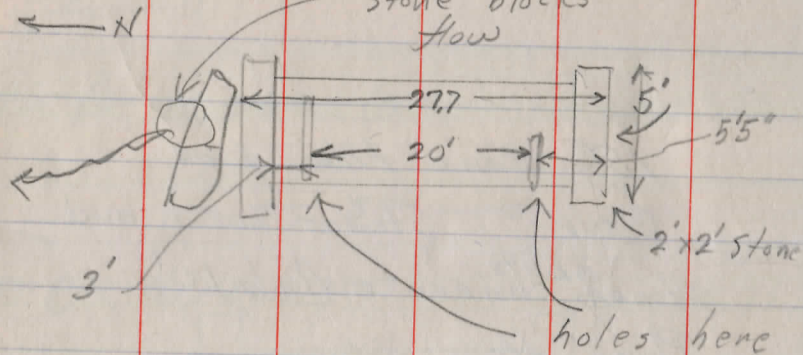 stone blocks
N
flow
27.7
5'
20'
5'5"
2'x2' stone
3'
holes here